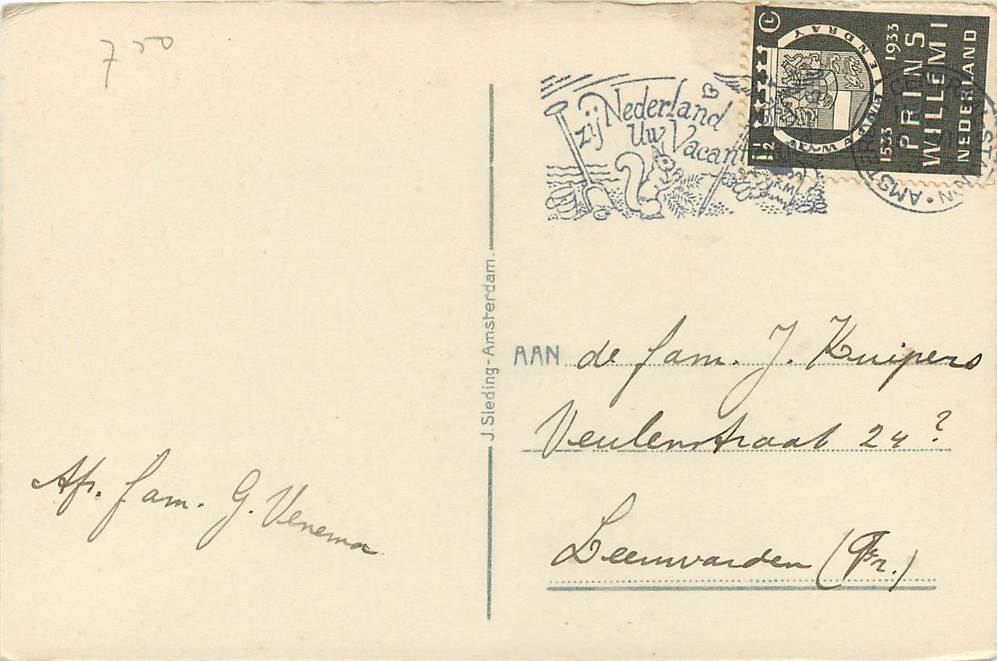 7 50
zij Nederland
Uw Vacant
1533 1933
PRINS
WILLEM I
NEDERLAND
1 1/2
J. Sleding-Amsterdam.
AAN de fam. J. Kuipers
Veulenstraat 24?
Leeuwarden (Fr.)
Afs. fam. G. Venema